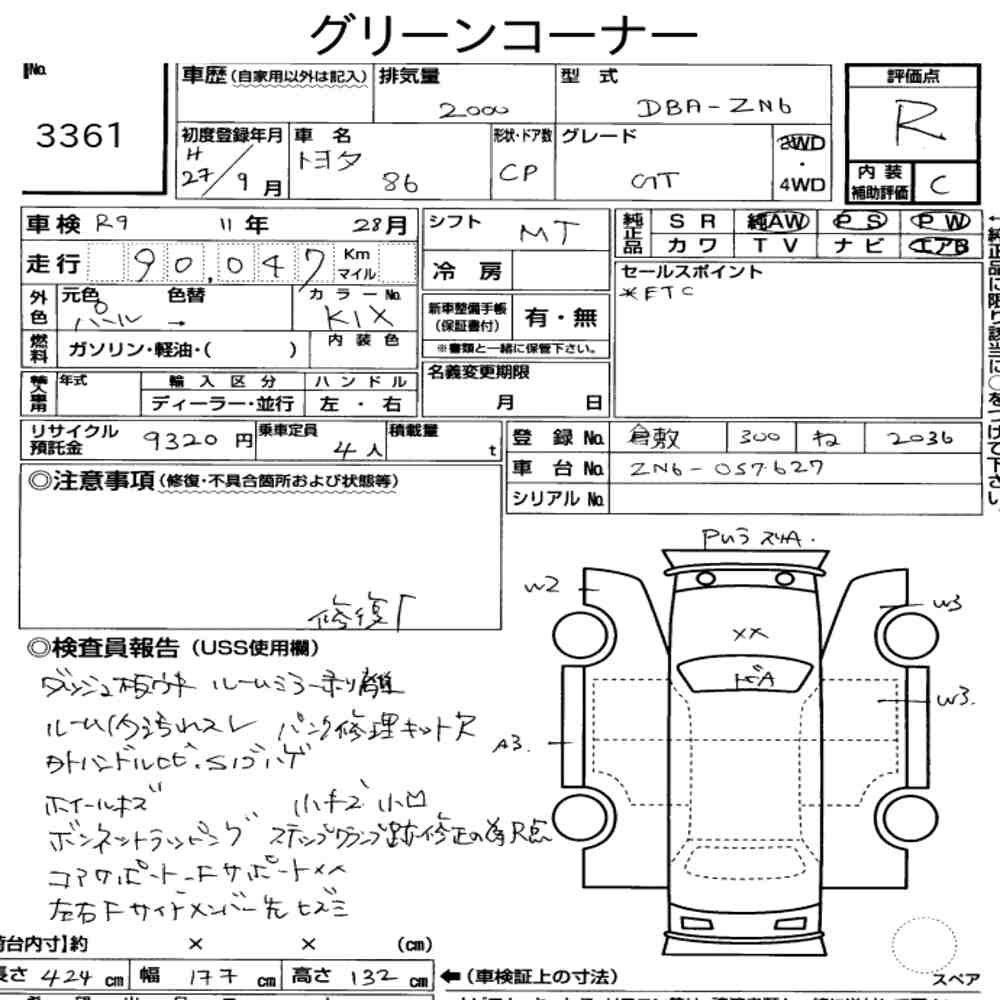 グリーンコーナー
No. 3361
車歴(自家用以外は記入) 排気量 2000 型式 DBA-ZN6
初度登録年月 H27/9月 車名 トヨタ 86 形状・ドア数 CP グレード GT 2WD・4WD
評価点 R
内装補助評価 C
車検 R9 11年 28月
走行 90,047 Km マイル
外色 元色 パール → 色替 カラーNo. K1X
燃料 ガソリン・軽油・( ) 内装色
輸入車用 年式 輸入区分 ディーラー・並行 ハンドル 左・右
シフト MT
冷房
新車整備手帳(保証書付) 有・無
※書類と一緒に保管下さい。
名義変更期限 月 日
純正品 SR 純AW PS PW
カワ TV ナビ エアB
セールスポイント
*ETC
←純正品に限り該当に○をつけて下さい。
リサイクル預託金 9320円 乗車定員 4人 積載量 t
登録No. 倉敷 300 ね 2036
車台No. ZN6-057627
シリアルNo.
◎注意事項(修復・不具合箇所および状態等)
修復
◎検査員報告(USS使用欄)
ダッシュ板ウキ ルームミラー剥離
ルーム内汚れスレ パンク修理キット欠
ホイールキズ 小キズ 小凹
ボンネットラッピング ステップクランプ跡修正の為R点
コアサポート-Fサポート××
左右Fサイドメンバー先ヒズミ
Pいろ スリA.
W2
W3
××
ドA
W3.
A3.
荷台内寸】約 × × (cm)
長さ 424 cm 幅 177 cm 高さ 132 cm
←(車検証上の寸法)
スペア